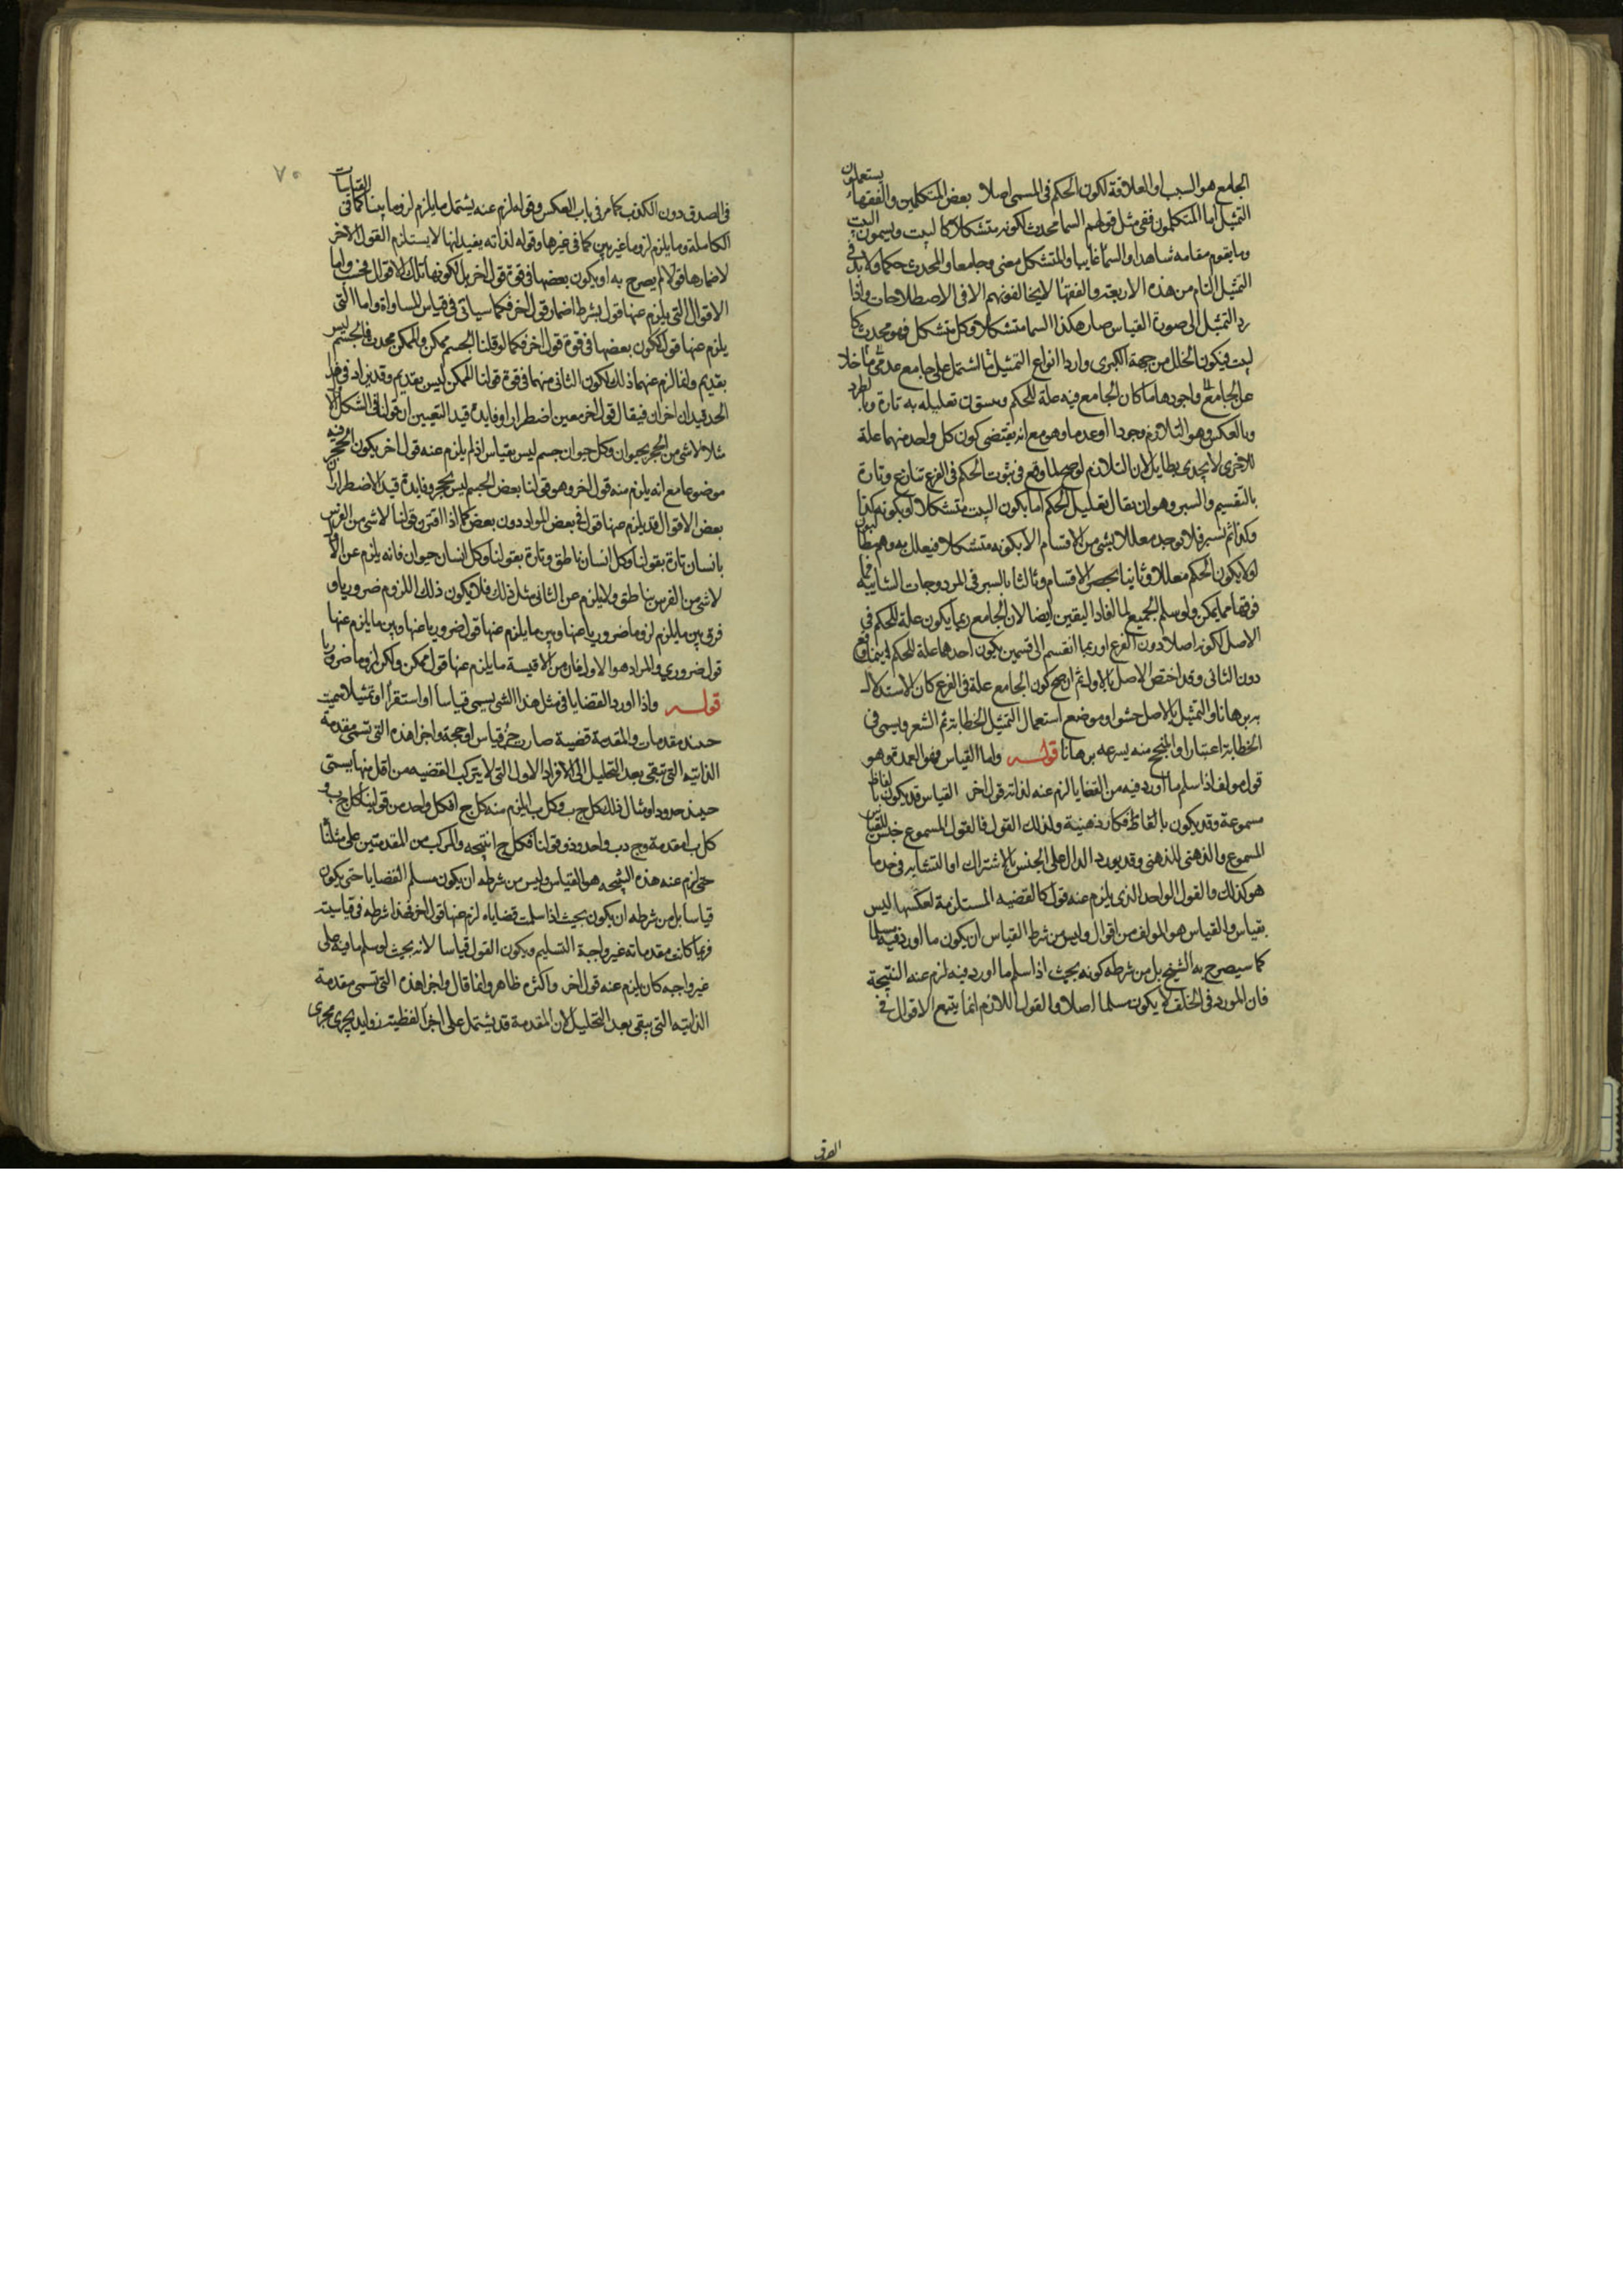 الجامع هو السبب او العلاقة لكون الحكم فى المسمى اصلا بعض المتكلمين والفقهاء يستعملون
التمثيل اما المتكلمون ففى مثل قولهم السما محدث لكونه متشكلا كالبيت ويسمون البيت
وما يقوم مقامه شاهدا والسما غايبا والمتشكل معنى وجامعا والمحدث حكما ولابد فى
التمثيل التام من هذه الاربعة والفقها لا يخالفونهم الا فى الاصطلاحات واذا
رد التمثيل الى صورة القياس صار هكذا السما متشكل وكل متشكل فهو محدث كا
لبيت فيكون الخلل من جهة الكبرى واردا انواع التمثيل ما اشتمل على جامع عدمى ثم ما خلا
عن الجامع ثم واجودها ما كان الجامع فيه علة للحكم ويسوق تعليله به تارة وبالطرد
وبالعكس وهو التلازم وجودا او عدما وهو مع انه يقتضى كون كل واحد منهما علة
للاخرى لا يجدى بطايل لان التلازم لو صح لما وقع فى ثبوت الحكم فى الفرع تنازع وتارة
بالتقسيم والسبر وهو ان يقال تعليل الحكم اما بكون البيت متشكلا او بكونه كذا
وكذا ثم نسبر فلا يوجد معللا بشى من الاقسام الا بكونه متشكلا فيعلل به وهم
اولا بكون الحكم معللا وثانيا بحصر الاقسام وثالثا بالسبر فى المزدوجات الثنايية فما
فوقها مما يمكن ولو سلم الجميع لما افاد اليقين ايضا لان الجامع ربما يكون علة للحكم فى
الاصل لكونه اصلا دون الفرع او ربما انقسم الى قسمين يكون احدهما علة للحكم اينما وقع
دون الثانى وقد اختص الاصل بالاول ثم ان صح كون الجامع علة فى الفرع كان الاستدلال
به برهانا والتمثيل بالاصل حشوا وموضع استعمال التمثيل الخطابة ثم الشعر ويسمى فى
الخطابة اعتبارا والمنجح منه بسرعه برهانا قوله واما القياس فهو العمدة وهو
قول مولف اذا سلم ما اورد فيه من القضايا لزم عنه لذاته قول اخر القياس قد يكون بالفاظ
مسموعة وقد يكون بالفاظ فكار ذهنية ولذلك القول فالقول المسموع جنس للقياس
المسموع والذهنى للذهنى وقد يورد الدال على الجنس بالاشتراك او التشابه فى حد ما
هو كذلك والقول الواحد الذى يلزم عنه قول كالقضيه المستلزمة لعكسها ليس
بقياس والقياس هو المولف من اقوال وليس من شرط القياس ان يكون ما اورد فيه مسلما
كما سيصرح به الشيخ بل من شرطه كونه بحيث اذا سلم ما اورد فيه لزم عنه النتيجة
فان المورد فى الخلف لا يكون مسلما اصلا والقول اللازم انما يتبع الاقوال فى
٧٠
فى الصدق دون الكذب كما مر فى باب العكس وقوله لزم عنه يشتمل ما يلزم لزوما بينا كما فى القياسات
الكاملة وما يلزم لزوما غير بين كما فى غيرها وقوله لذاته يفيد انها لا يستلزم القول الاخر
لاضمارها قولا لم يصرح به او يكون بعضها فى قوة قول اخر بل لكونها تلك الاقوال فحسب واما
الاقوال التى يلزم عنها قول بشرط اضمار قول اخر فكما سياتى فى قياس المساواة واما التى
يلزم عنها قول لكون بعضها فى قوة قول اخر فكما لو قلنا الجسم ممكن والممكن محدث فالجسم ليس
بقديم وانما لزم عنهما ذلك لكون الثانى منهما فى قوة قولنا الممكن ليس بقديم وقد يزاد فى هذا
الحد قيدان اخران فيقال قول اخر معين اضطرارا وفايدة قيد التعيين ان قولنا فى الشكل الاول
مثلا لا شى من الحجر بحيوان وكل حيوان جسم ليس بقياس اذ لم يلزم عنه قول اخر يكون الحجر فيه
موضوعا مع انه يلزم منه قول اخر وهو قولنا بعض الجسم ليس بحجر وفايدة قيد الاضطرار ان
بعض الاقوال قد يلزم عنها قول فى بعض المواد دون بعض كما اذا اقترن قولنا لا شى من الفرس
بانسان تارة بقولنا وكل انسان ناطق وتارة بقولنا وكل انسان حيوان فانه يلزم عن الاول
لا شى من الفرس بناطق ولا يلزم عن الثانى مثل ذلك فلا يكون ذلك اللزوم ضروريا و
فرق بين ما يلزم لزوما ضروريا عنها وبين ما يلزم عنها قول ضروريا عنها وبين ما يلزم عنها
قول ضرورى والمراد هو الاول فان من الاقيسة ما يلزم عنها قول ممكن ولكن لزوما ضروريا
قوله واذا اورد القضايا فى مثل هذا الشى يسمى قياسا او استقرا او تمثيلا سميت
حينيذ مقدمات والمقدمة قضية صارت جزء قياس او حجة واجزا هذه التى تسمى مقدمة
الذاتيه التى تبقى بعد التحليل الى الافراد الاول التى لا يتركب القضيه من اقل منها يسمى
حينيذ حدودا ومثال ذلك كل ج ب وكل ب ا يلزم منه كل ج ا فكل واحد من قولينا كل ج ب و
كل ب ا مقدمة و ج و ب و ا حدود وقولنا فكل ج ا نتيجه والمركب من المقدمتين على مثلنا
حتى لزم عنه هذه النتيجه هو القياس وليس من شرطه ان يكون مسلم القضايا حتى يكون
قياسا بل من شرطه ان يكون بحيث اذا سلمت قضاياه لزم عنها قول اخر فهذا شرطه فى قياسيته
فربما كانت مقدماته غير واجبة التسليم ويكون القول قياسا لانه بحيث لو سلم ما فيه على
غير واجبه كان يلزم عنه قول اخر واكثره ظاهر وانما قال واجزا هذه التى تسمى مقدمة
الذاتيه التى يبقى بعد التحليل لان المقدمة قد يشتمل على اجزا لفظيه زوايد يجرى مجرى